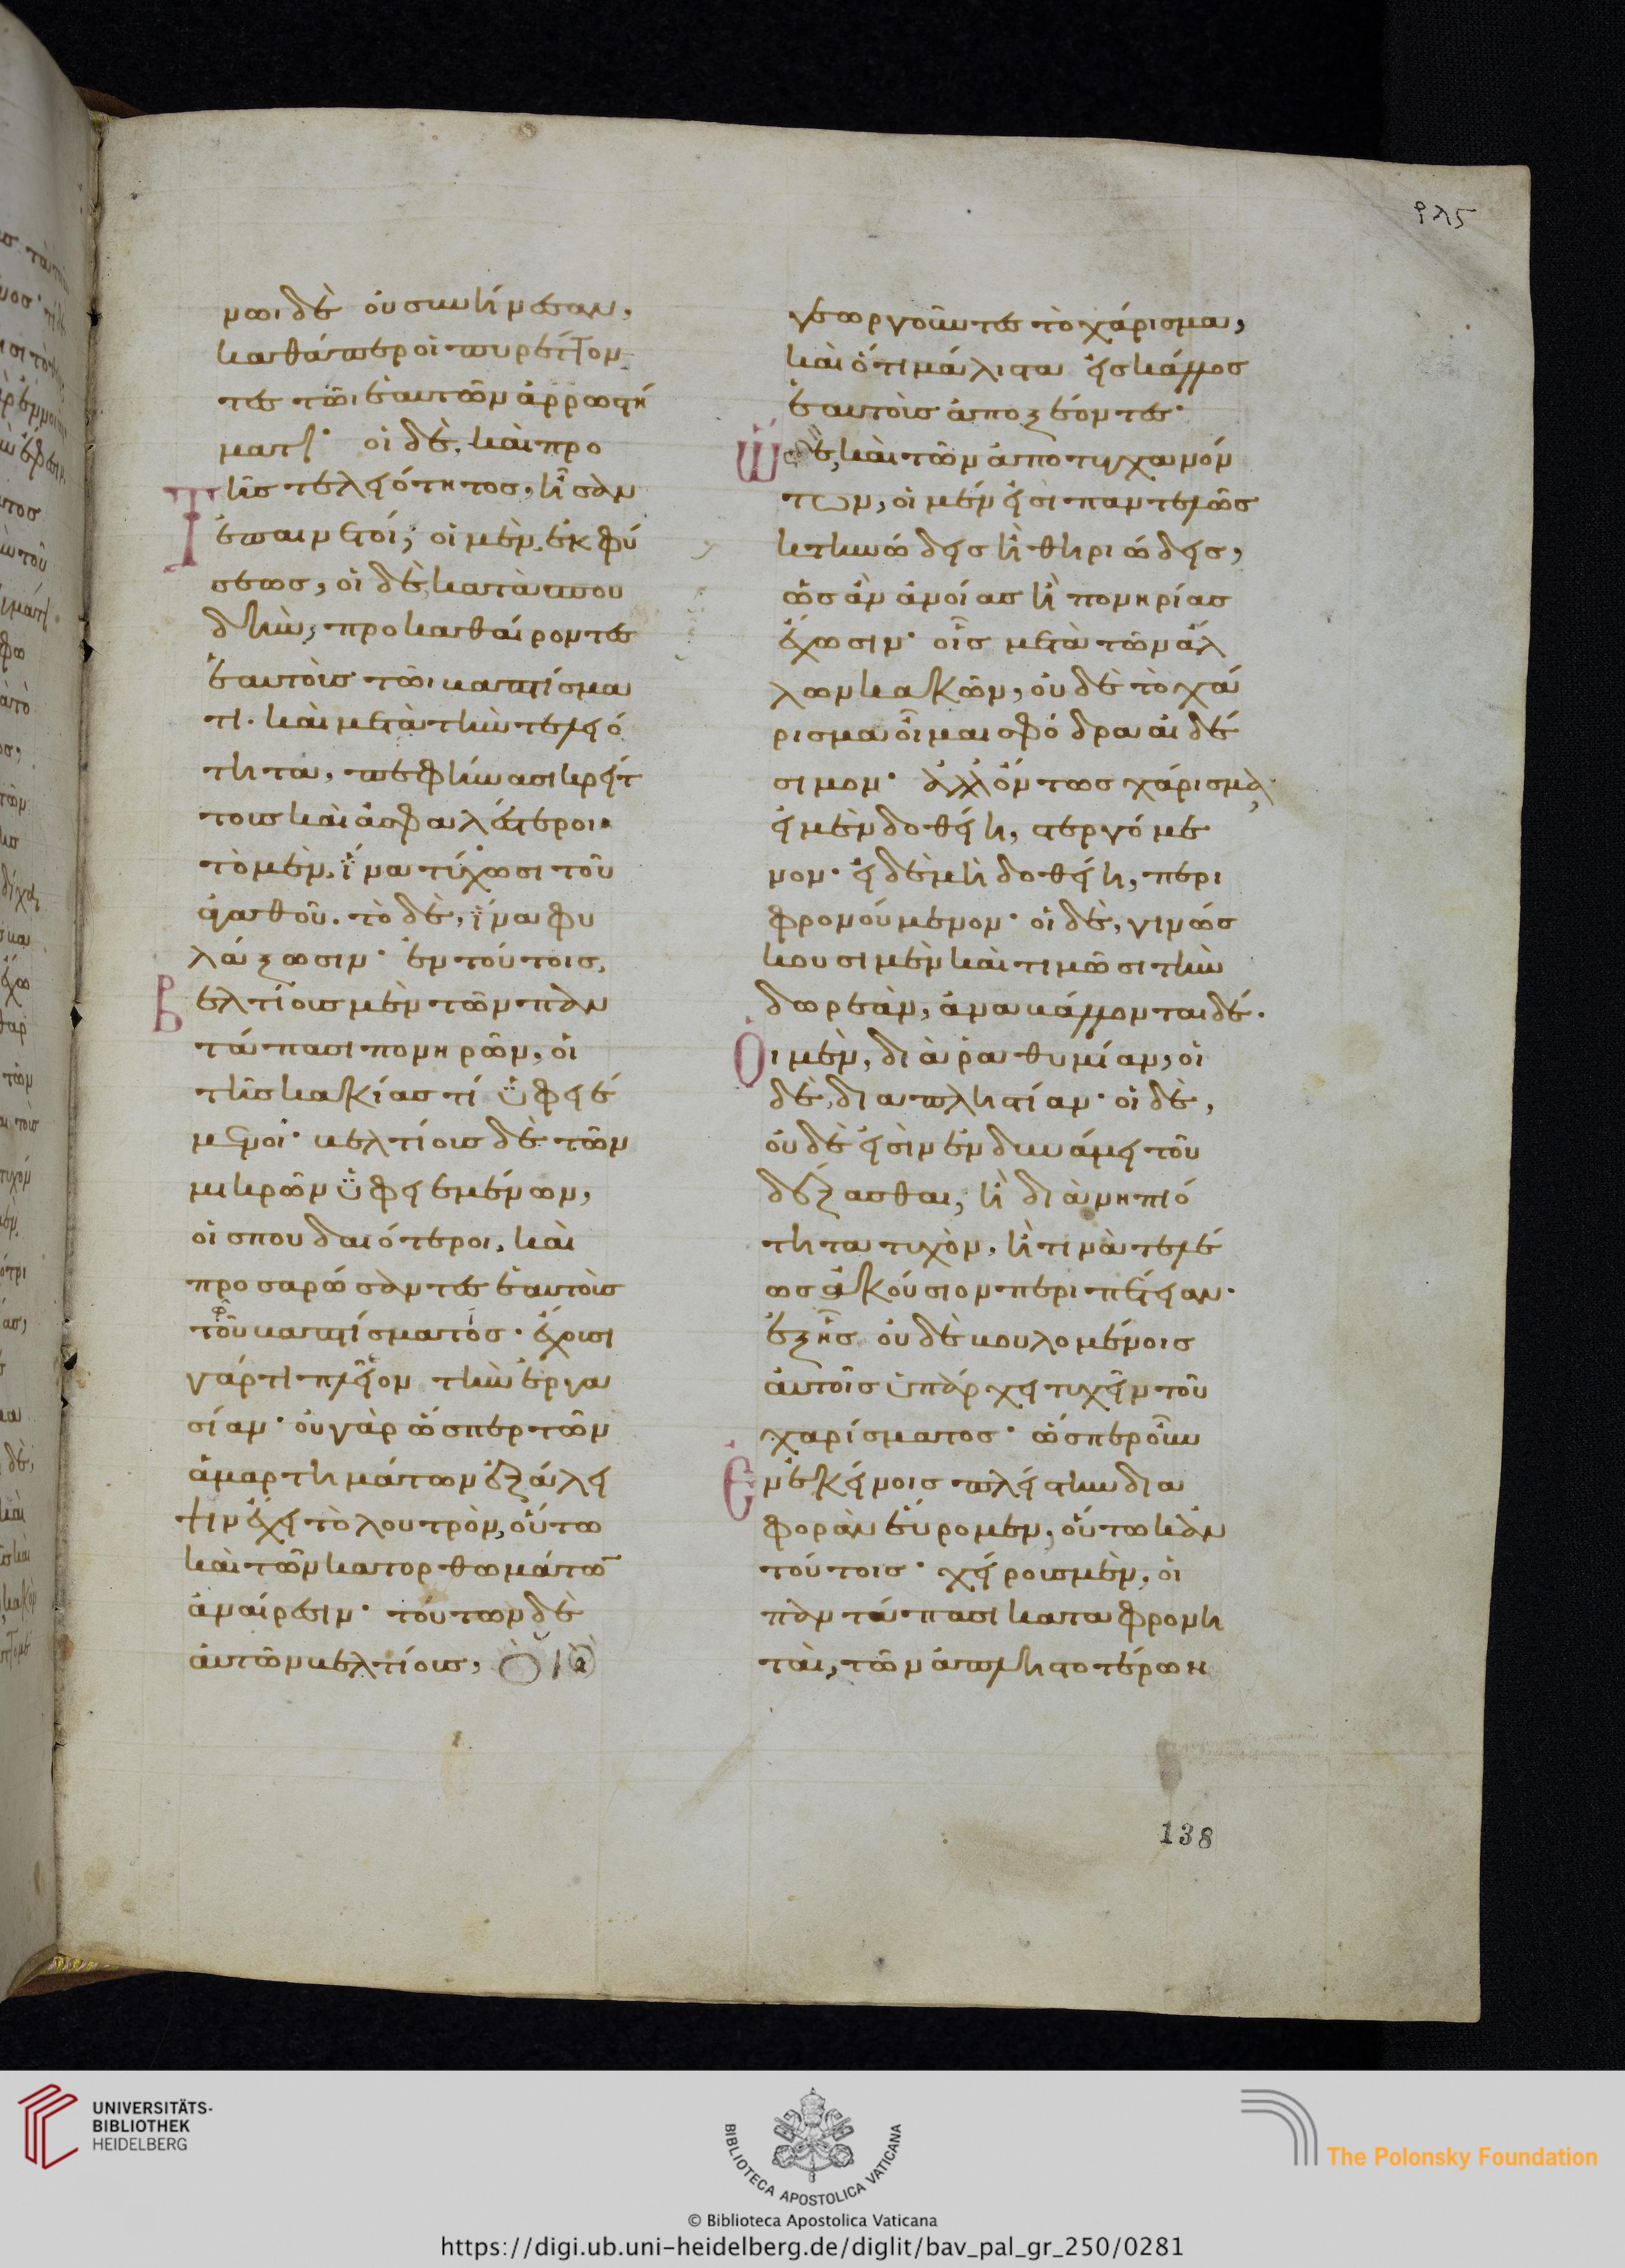 ρλς
νωι δὲ οὐ συνήνεσαν,
καθάπερ οἱ πυρέττον
τες τῶι ἑαυτῶν ἀρρωστή
ματι· οἱ δὲ, καὶ πρὸ
τῆς τελειότητος, ἦσαν
ἐπαινετοί, οἱ μὲν, ἐκ φύ
σεως, οἱ δὲ, κατὰ σπου
δὴν, προκαθαίροντες
ἑαυτοὺς τῶι βαπτίσμα
τι. καὶ μετὰ τὴν τελειό
τητα, πεφήνασι κρείτ
τους καὶ ἀσφαλέστεροι·
τὸ μὲν, ἵνα τύχωσι τοῦ
ἀγαθοῦ. τὸ δὲ, ἵνα φυ
λάξωσιν· ἐν τούτοις,
βελτίους μὲν τῶν παν
τάπασι πονηρῶν, οἱ
τῆς κακίας τί ὑφειέ
μενοι· βελτίους δὲ τῶν
μικρῶν ὑφειεμένων,
οἱ σπουδαιότεροι, καὶ
προσαρώσαντες ἑαυτοὺς
πρὸ τοῦ βαπτίσματος· ἔχουσι
γάρ τι πλεῖον τὴν ἐργα
σίαν· οὐ γὰρ ὥσπερ τῶν
ἁμαρτημάτων ἐξάλει
ψιν ἔχει τὸ λουτρὸν, οὕτω
καὶ τῶν κατορθωμάτω̅
ἀναίρεσιν· τούτων δὲ
αὐτῶν βελτίους,
γεωργοῦντες τὸ χάρισμα,
καὶ ὅτι μάλιστα εἰς κάλλος
ἑαυτοὺς ἀποξέοντες·
Ὡς δὲ, καὶ τῶν ἀποτυγχανόν
των, οἱ μέν εἰσι παντελῶς
κτηνώδεις ἢ θηριώδεις,
ὡς ἂν ἀνοίας ἢ πονηρίας
ἔχωσιν· οἷς μετὰ τῶν ἄλ
λων κακῶν, οὐδὲ τὸ χά
ρισμα οἶμαι σφόδρα αἰδέ
σιμον· ἀλλ' ὄντως χάρισμα,
εἰ μὲν δοθείη, στεργόμε
νον· εἰ δὲ μὴ δοθείη, περι
φρονούμενον· οἱ δὲ, γινώσ
κουσι μὲν καὶ τιμῶσι τὴν
δωρεὰν, ἀναβάλλονται δέ.
Οἱ μὲν, διὰ ῥαθυμίαν, οἱ
δὲ, δι' ἀπληστίαν· οἱ δὲ,
οὐδέ εἰσὶν ἐν δυνάμει τοῦ
δέξασθαι, ἢ διὰ νηπιό
τητα τυχὸν, ἢ τινὰ τελέ
ως ἀκούσιον περιπέτειαν·
ἐξ ἧς οὐδὲ βουλομένοις
αὐτοῖς ὑπάρχει τυχεῖν τοῦ
χαρίσματος· ὥσπερ οὖν
ἐν ἐκείνοις πλείστην δια
φορὰν εὕρομεν, οὕτω κἀν
τούτοις· χείρους μὲν, οἱ
παντάπασι καταφρονη
ταὶ, τῶν ἀπληστοτέρων
138
UNIVERSITÄTS-
BIBLIOTHEK
HEIDELBERG
BIBLIOTECA APOSTOLICA VATICANA
The Polonsky Foundation
© Biblioteca Apostolica Vaticana
https://digi.ub.uni-heidelberg.de/diglit/bav_pal_gr_250/0281